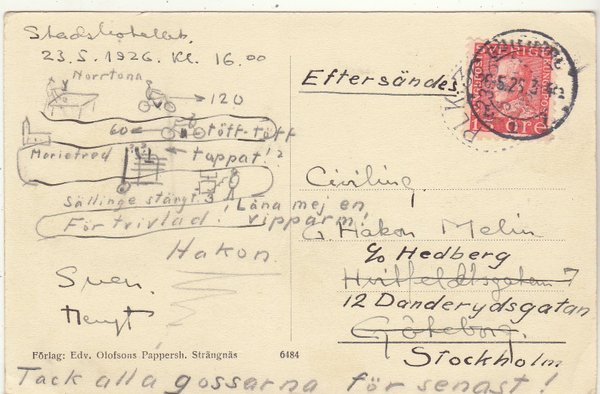 Stadshotellet
23.5.1926. Kl. 16.00
Norrtuna
120
60
töff-töff
Mariefred
tappat!?
Sällinge stängt.
Låna mej en
vipparm!
Förtvivlad!
Hakon.
Sven.
Förlag: Edv. Olofsons Pappersh. Strängnäs
6484
Eftersändes
SVERIGE
ÖRE
Civiling.
G. Håkon Melin
c/o Hedberg
Hvitfeldtsgatan 7
12 Danderydsgatan
Göteborg.
Stockholm
Tack alla gossarna för senast!